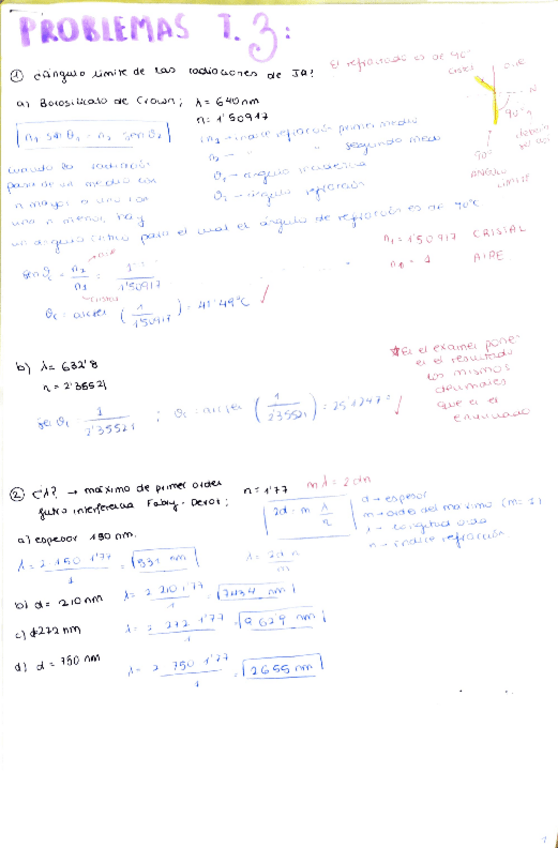 PROBLEMAS T. 3:
① ¿ángulo límite de las radiaciones de
El refractado es de 90°
a) Borosilicato de Crown; λ = 640 nm
n = 1'50917
n₁ sen θ₁ = n₂ sen θ₂
n₁ → índice refracción primer medio
n₂ → " " segundo medio
θ₁ → ángulo incidencia
θ₂ → ángulo refracción
AIRE
N
90°
90°
ANGULO
LIMITE
cuando la radiación
pasa de un medio con
n mayor a uno con
una n menor, hay
un ángulo crítico para el cual el ángulo de refracción es de 90°C
n₁ = 1'50917 CRISTAL
n₂ = 1 AIRE
sen θc = n₂ / n₁ = 1 / 1'50917
aire
θc = arcsen (1 / 1'50917) = 41'49°C
b) λ = 632'8
n = 2'35521
sen θc = 1 / 2'35521 ; θc = arcsen (1 / 2'35521) = 25'1247°
*En el examen poner
en el resultado
los mismos
decimales
que en el
enunciado
② ¿λ? → máximo de primer orden
n = 1'77
mλ = 2dn
filtro interferencia Fabry-Perot;
2d = m λ / n
d → espesor
m → orden del máximo (m = 1)
λ → longitud onda
n → índice refracción
a) espesor 150 nm.
λ = 2 150 1'77 / 1 = 531 nm
λ = 2d n / m
b) d = 210 nm
λ = 2 210 1'77 / 1 = 7434 nm
c) d 272 nm
λ = 2 272 1'77 / 1 = 9629 nm
d) d = 750 nm
λ = 2 750 1'77 / 1 = 2655 nm
1